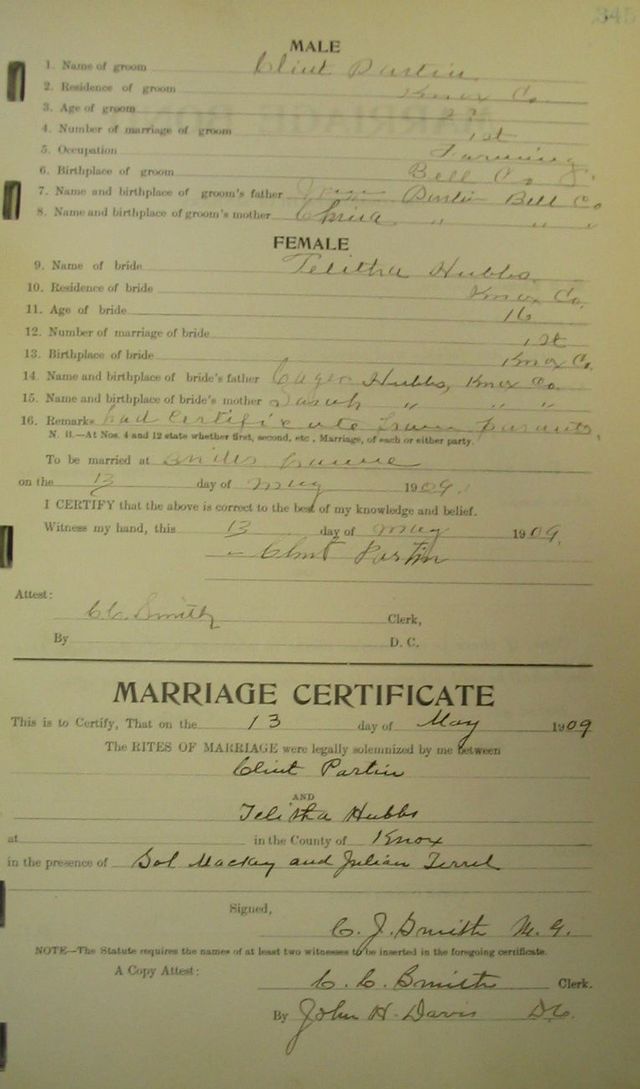 345
MALE
1. Name of groom Clint Partin
2. Residence of groom Knox Co.
3. Age of groom
4. Number of marriage of groom 1st
5. Occupation Farming
6. Birthplace of groom Bell Co
7. Name and birthplace of groom's father Partin Bell Co
8. Name and birthplace of groom's mother " " "
FEMALE
9. Name of bride Telitha Hubbs
10. Residence of bride Knox Co.
11. Age of bride 16
12. Number of marriage of bride 1st
13. Birthplace of bride Knox Co.
14. Name and birthplace of bride's father Hubbs, Knox Co.
15. Name and birthplace of bride's mother Sarah " " "
16. Remarks had certificate from parents.
N. B.—At Nos. 4 and 12 state whether first, second, etc., Marriage, of each or either party.
To be married at
on the 13 day of May 1909.
I CERTIFY that the above is correct to the best of my knowledge and belief.
Witness my hand, this 13 day of May 1909.
Clint Partin
Attest:
C.C. Smith Clerk,
By D. C.
MARRIAGE CERTIFICATE
This is to Certify, That on the 13 day of May 1909
The RITES OF MARRIAGE were legally solemnized by me between
Clint Partin
AND
Telitha Hubbs
at in the County of Knox
in the presence of Sol Mackay and Julian Terrel
Signed,
C. J. Smith M. G.
NOTE—The Statute requires the names of at least two witnesses to be inserted in the foregoing certificate.
A Copy Attest:
C. C. Smith Clerk.
By John H. Davis D.C.